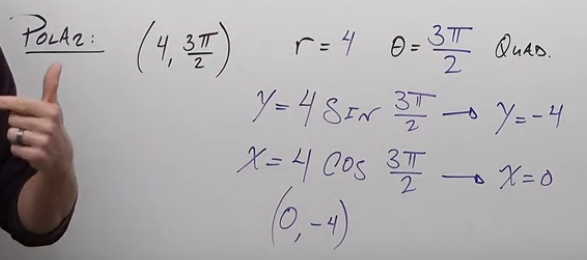 POLAR: (4, 3π/2) r = 4 θ = 3π/2 QUAD.
y = 4 SIN 3π/2 → y = -4
x = 4 COS 3π/2 → x = 0
(0, -4)